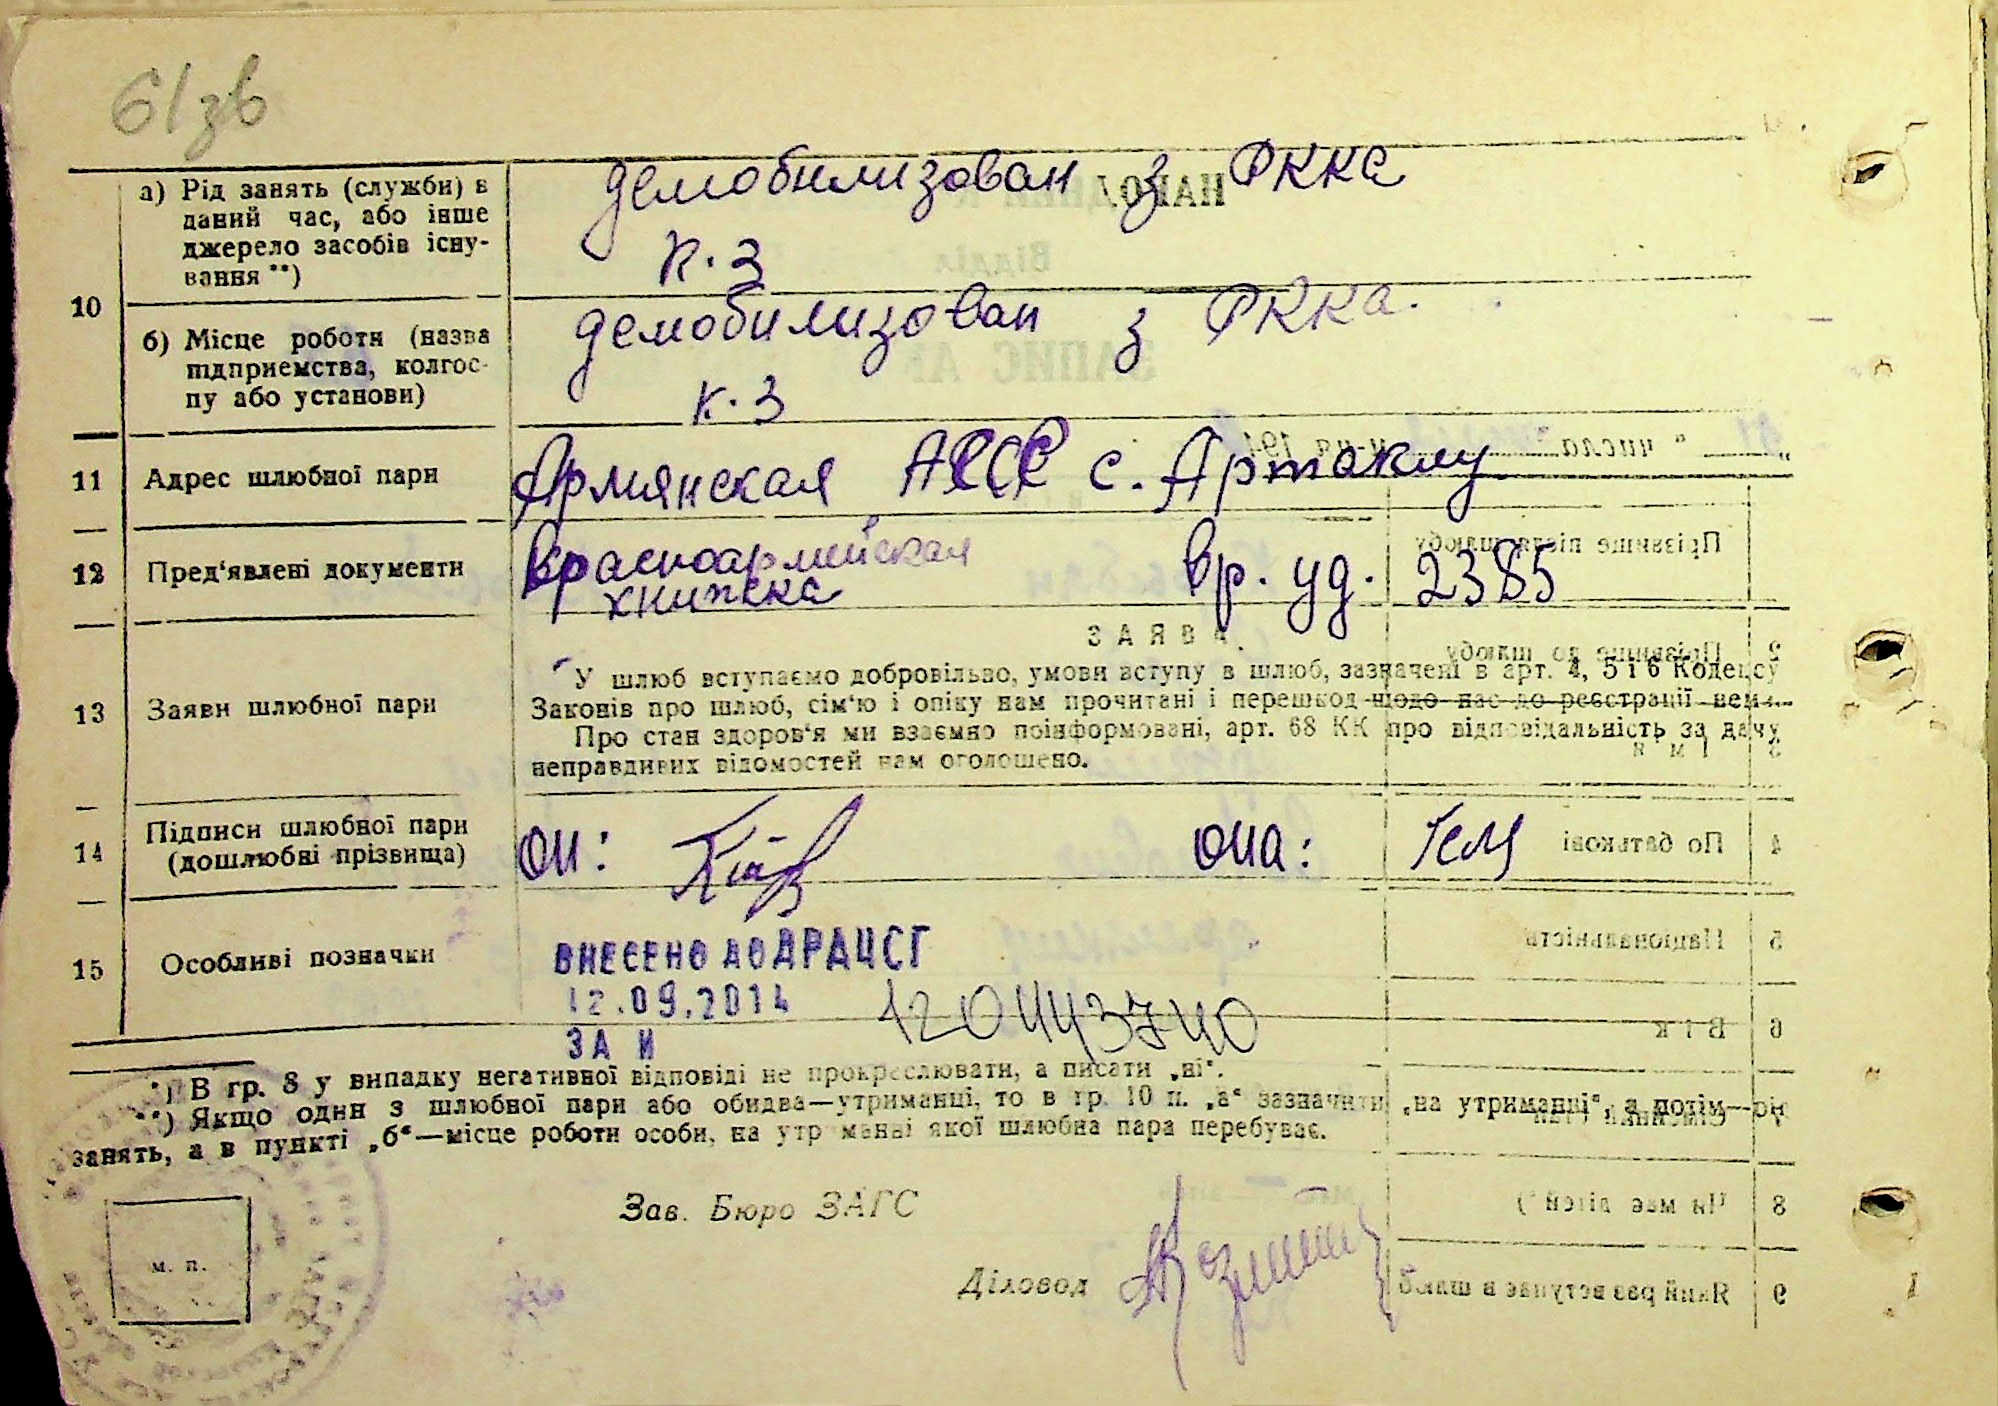 61зв
10
а) Рід занять (служби) в
даний час, або інше
джерело засобів існу-
вання **)
демобилизован з РККА
к.з
б) Місце роботи (назва
підприємства, колгос-
пу або установи)
демобилизован з РККА.
к.з
11
Адрес шлюбної пари
Армянская АССР с.
12
Пред'явлені документи
Красноармейская
книжка
вр. уд. 2385
13
Заяви шлюбної пари
ЗАЯВА.
У шлюб вступаємо добровільно, умови вступу в шлюб, зазначені в арт. 4, 5 і 6 Кодексу
Законів про шлюб, сім'ю і опіку нам прочитані і перешкод щодо нас до реєстрації нема.
Про стан здоров'я ми взаємно поінформовані, арт. 68 КК про відповідальність за дачу
неправдивих відомостей нам оголошено.
14
Підписи шлюбної пари
(дошлюбні прізвища)
он:
она:
15
Особливі позначки
ВНЕСЕНО ДО ДРАЦСГ
12.09.2014
ЗА И
1204443740
*) В гр. 8 у випадку негативної відповіді не прокреслювати, а писати „ні".
**) Якщо один з шлюбної пари або обидва—утриманці, то в гр. 10 п. „а" зазначити „на утриманці", а потім—рід
занять, а в пункті „б"—місце роботи особи, на утриманні якої шлюбна пара перебуває.
м. п.
Зав. Бюро ЗАГС
Діловод
Прізвище після шлюбу
2
Прізвище до шлюбу
3
Імя
4
По батькові
5
Національність
6
Вік
7
Сімейний стан
8
Чи має дітей *)
9
Який раз вступає в шлюб